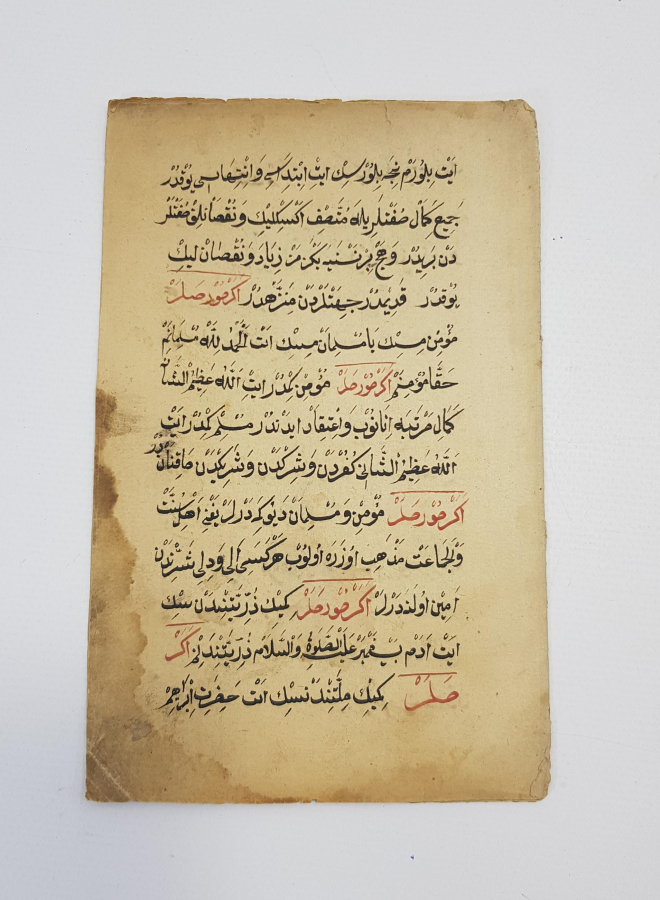 ایت بلورم نجه بلورسك ایت ابتداسی و انتهاسی یوقدر
جمیع کمال صفتلر یله متصف اکسکلیك و نقصانلق صفتلر
دن بریدر و هیچ بر نسنیه بکزمز زیاد و نقصان لیك
یوقدر قدیمدر جهتلردن منزهدر اکر صورسه لر
مؤمن مسك یا مسلمان مسك ایت الحمد لله مسلمانم
حقا مؤمنم اکر صورسه لر مؤمن کمدر ایت الله عظیم الشأنه
کمال مرتبه اینانوب و اعتقاد ایدندر مسلم کمدر ایت
الله عظیم الشانی کفردن و شرکدن و شریکدن صاقنان در
اکر صورسه لر مؤمن و مسلمان دیو که درلر یعنی اهل سنت
و الجماعت مذهب اوزره اولوب هرکسی الی و دلی شرندن
امین اوله درلر اکر صورسه لر کمك ذریتیندن سك
ایت ادم پیغمبر علیه الصلوة و السلام ذریتیندنم اکر
صورسه لر کمك ملتیندنسك ایت حضرت ابراهیم